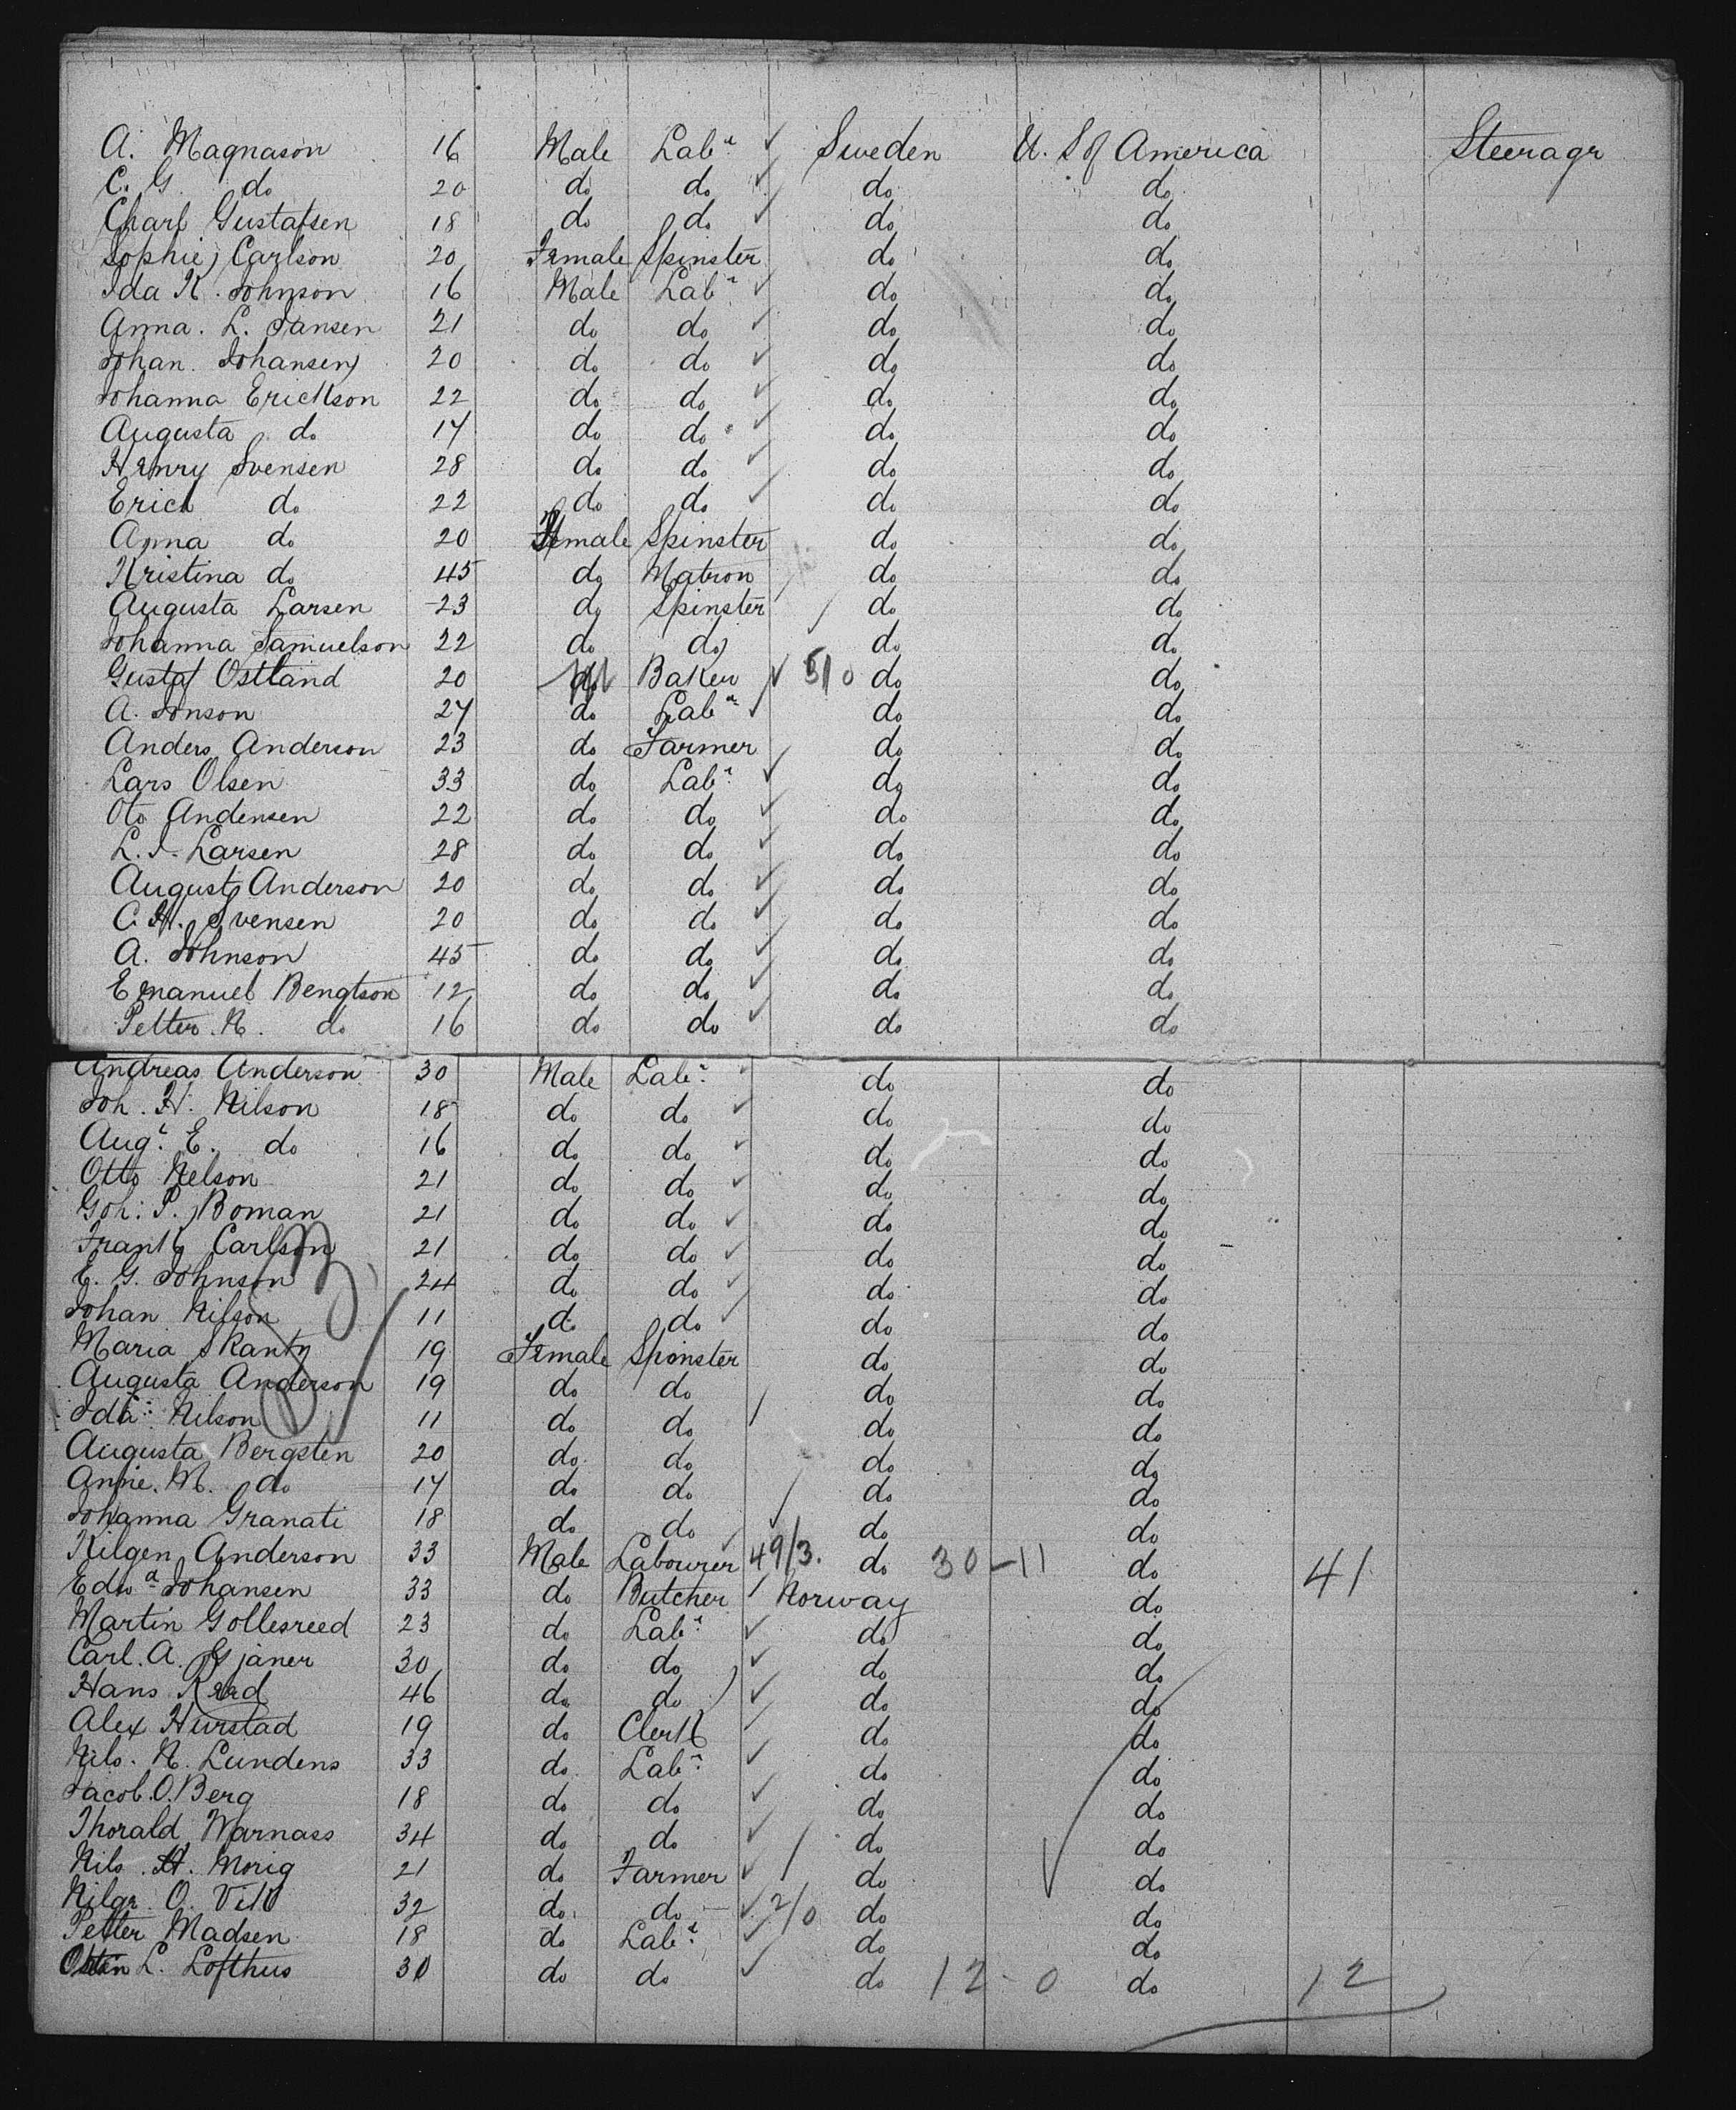 A. Magnason 16 Male Labr. Sweden U. S of America Steerage
C. G. do 20 do do do do
Charl Gustafsen 18 do do do do
Sophie Carlson 20 Female Spinster do do
Ida K. Johnson 16 Male Labr. do do
Anna. L. Jansen 21 do do do do
Johan Johansen 20 do do do do
Johanna Erickson 22 do do do do
Augusta do 17 do do do do
Henry Svensen 28 do do do do
Erick do 22 do do do do
Anna do 20 Female Spinster do do
Kristina do 45 do Matron do do
Augusta Larsen 23 do Spinster do do
Johanna Samuelson 22 do do do do
Gustaf Ostland 20 M Baker 51 0 do do
A. Jonson 27 do Labr. do do
Anders Anderson 23 do Farmer do do
Lars Olsen 33 do Labr. do do
Oto Andersen 22 do do do do
L. J. Larsen 28 do do do do
August Anderson 20 do do do do
C. H. Svensen 20 do do do do
A. Johnson 45 do do do do
Emanuel Bengtson 12 do do do do
Petter. N. do 16 do do do do
Andreas Anderson 30 Male Labr. do do
Joh. H. Nilson 18 do do do do
Augt. E. do 16 do do do do
Otto Nelson 21 do do do do
Goh: P. Boman 21 do do do do
Frank Carlson 21 do do do do
E. G. Johnson 24 do do do do
Johan Nilson 11 do do do do
Maria Skanty 19 Female Spinster do do
Augusta Anderson 19 do do do do
Ida Nilson 11 do do do do
Augusta Bergsten 20 do do do do
Annie. M. do 17 do do do do
Johanna Granati 18 do do do do
Nilgen Anderson 33 Male Labourer 49/3. do 30-11 do 41
Edwd Johansen 33 do Butcher Norway do
Martin Gollesreed 23 do Labr. do do
Carl. A. Gjaner 30 do do do do
Hans 46 do do do do
Alex Hurstad 19 do Clerk do do
Nils. N. Lundens 33 do Labr. do do
Jacob. O. Berg 18 do do do do
Thorald Warnass 34 do do do do
Nils. H. Morig 21 do Farmer do do
O. Vik 32 do do 2/0 do do
Petter Madsen 18 do Labr. do do
L. Lofthus 30 do do do 12-0 do 12